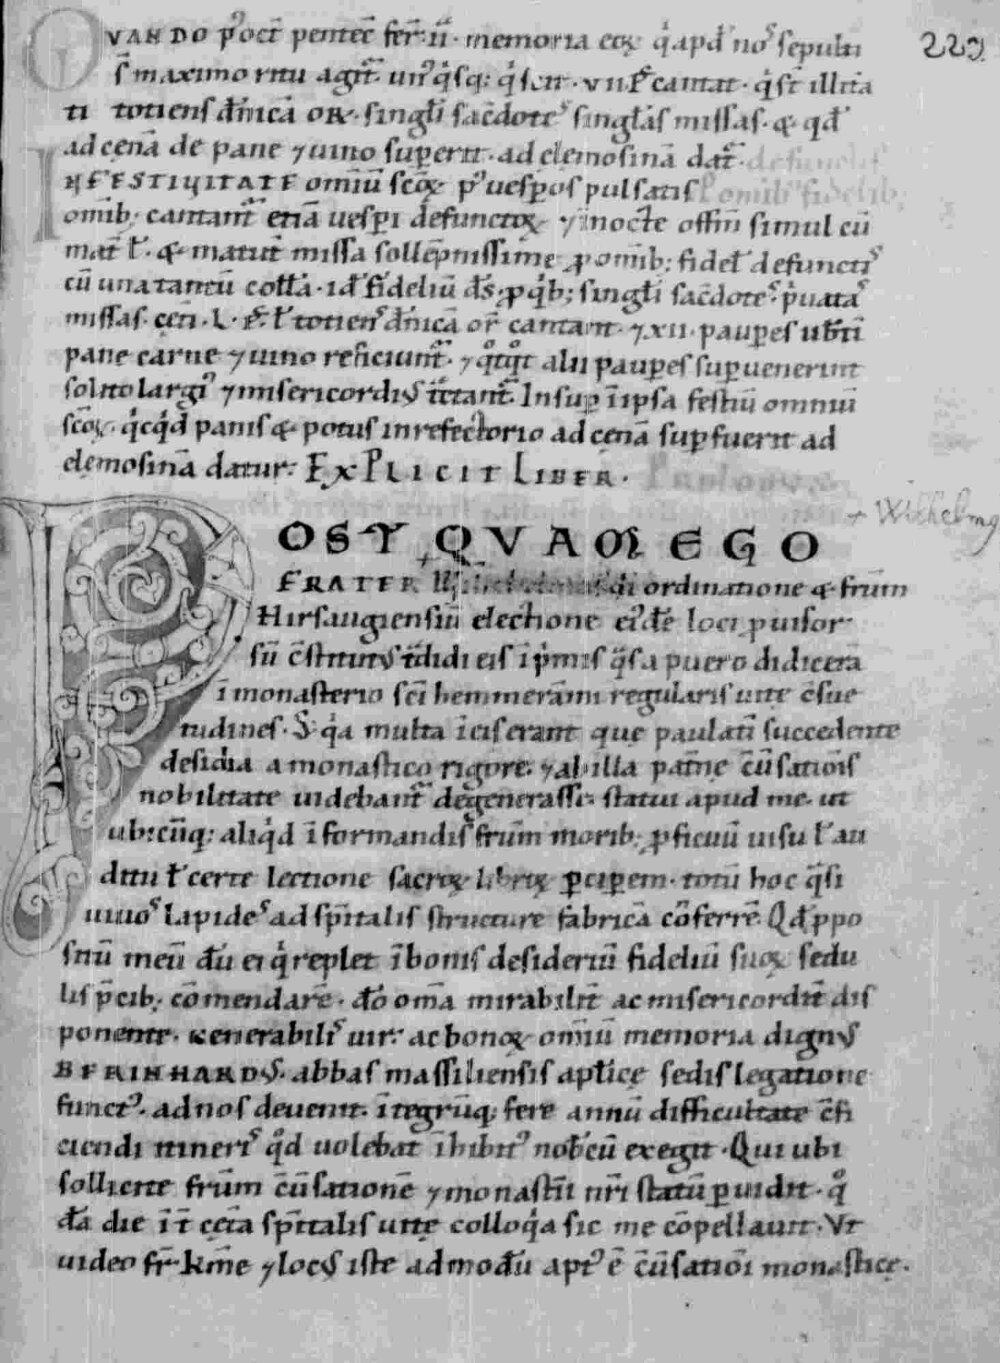 QVANDO p᷒ oct̄ pentec̄ fer̄·ii· memoria eoꝝ q̇ apđ nos sepulti
s̄ maximo ritu agit᷑. un᷒qͥsq; qͥ scit· vii ps̄ cantat· qͥ s̄t illitͣa
ti totiens đnicā or̄. singłi sac̄dotes singłas missas. & qđ
ad cęnā de pane ⁊ uino superit· ad elemosinā dat᷑·
IN FESTIVITATE omiū scōꝝ p᷒ uesp̄os pulsatis
omib; cantant᷑ etiā uesperi defunctoꝝ ⁊ ī nocte offm̄ simul cū
mat̄ ł. & matut̄ missa sollēpnissime ꝓ omib; fideł defunctis
cū una tantū coll̄a. id' fideliū đs. ꝓ qͥb; singłi sac̄dotes p̍uatas
missas. cęt̄i .L. ps̄. ł totiens đnicā or̄ cantant· ⁊ xii· paup̄es ub̄ti
pane carne ⁊ uino reficiunt᷑· ⁊ qͦtqͦt alii paup̄es sup̄uenerint
solito largi᷒ ⁊ misericordi᷒ t̄ctant᷑. Insup̄ ī ipsa festiū omniū
scōꝝ. qͥcqͥd panis & potus in refectorio ad cęnā sup̄fuerit ad
elęmosinā datur. EXPLICIT LIBER.
POSTQVAM EGO
FRATER Wilhelmus di ordinatione & frūm
Hirsaugiensiū electione ei᷒dē loci ꝓuisor·
sū c̄stitut᷒ t̄didi eis ī p̍mis qͣ a puero didicerā
ī monasterio sc̄i hemmerāmi regularis uitę c̄sue
tudines. S̄ qͥa multa ī eis erant quę paulatī succedente
desidia a monastico rigore. ⁊ ab illa pat̄ne c̄u̅sationis
nobilitate uidebant᷑ degenerasse. statui apud me. ut
ubicūq; aliqͥd ī formandis frūm morib; ꝓficuū uisu ł au
ditu ł certe lectione sacroꝝ libroꝝ p̄cip̄em. totū hoc qͣsi
uiuos lapides ad sp̄italis structurę fabricā cōferrē. Qđ ꝓpo
sitū meū dū ei qͥ replet ī bonis desideriū fideliū suoꝝ sedu
lis p̄cib; cōmendarē. do om̄a mirabilit̄ ac misericordit̄ dis
ponente. uenerabilis uir. ac bonoꝝ omiū memoria dign᷒
BERINHARD᷒. abbas massiliensis ap̄licę sedis legatione
funct᷒. ad nos deuenit. ītegrūq; fere annū difficultate c̄fi
ciendi itineris qͦd uolebat īhibit᷒ nob̄cū exegit. Qui ubi
sollicite frūm c̄u̅sationē ⁊ monast̄ii nr̄i statū p̄uidit. qͦ
dā die īt̄ cęt̄a sp̄italis uitę colloqͥa sic me cōpellauit. Vt
uideo fr̄ kme ⁊ loc᷒ iste admodū apt᷒ ē c̄u̅sationi monasticę.
229.
+ Wilhelmus